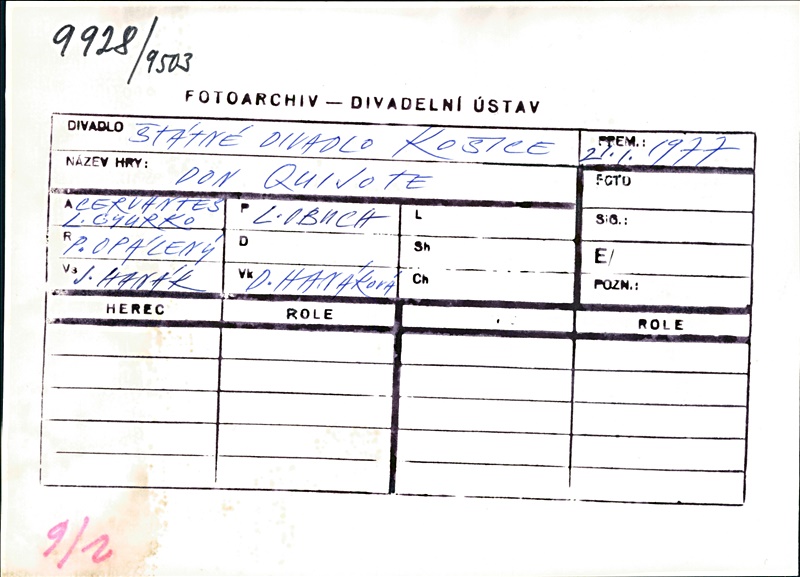 9928/9503
FOTOARCHIV — DIVADELNÍ ÚSTAV
DIVADLO ŠTÁTNÉ DIVADLO KOŠICE
PREM.: 21.1. 1977
NÁZEV HRY: DON QUIJOTE
FOTO
A CERVANTES
L. GYURKO
P L. OBUCH
L
SIG.:
R P. OPÁLENÝ
D
Sh
E/
Vs J. HANÁK
Vk D. HANÁKOVÁ
Ch
POZN.:
HEREC ROLE ROLE
9/2